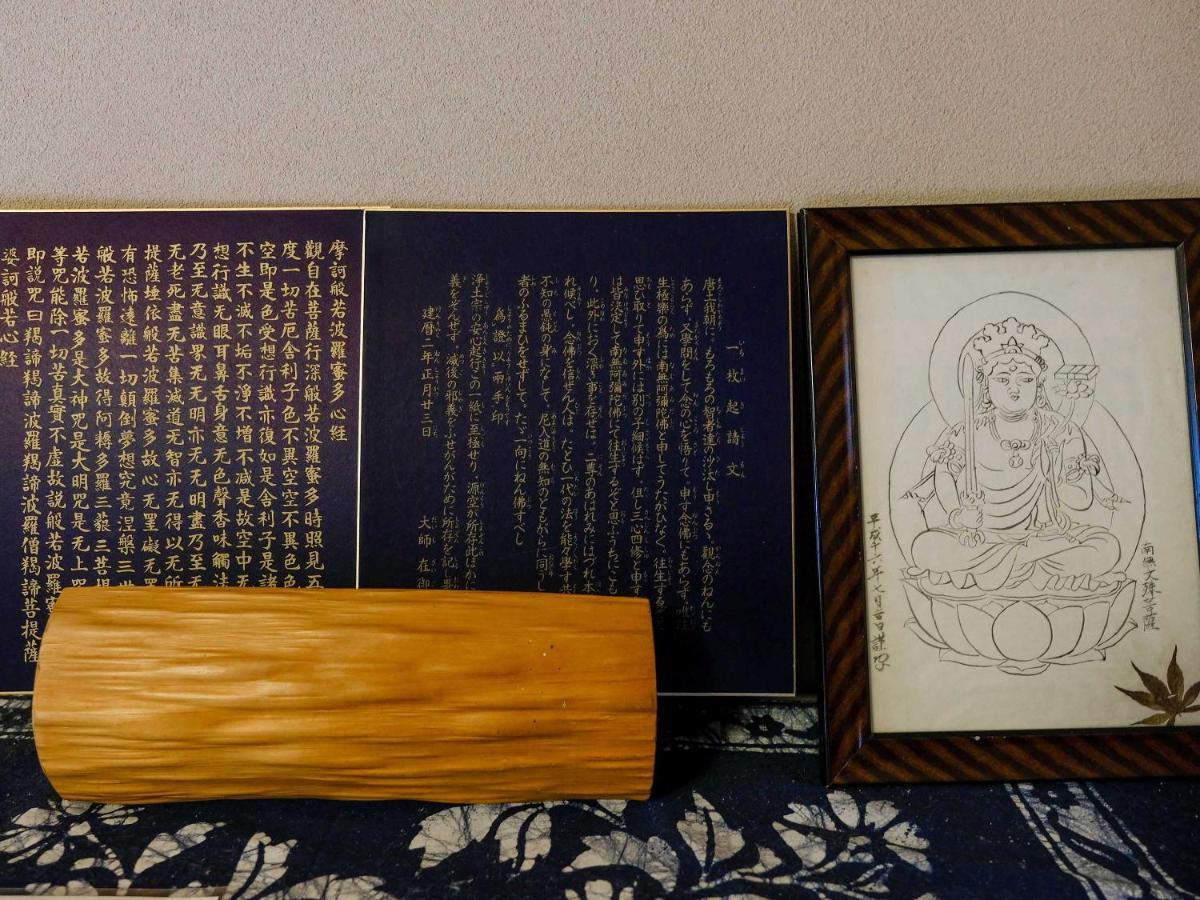 南無文殊菩薩
平成十六年七月
一枚起請文
唐土我朝に、もろもろの智者達の沙汰し申さるゝ、觀念のねんにも
あらず。又學問をして念の心を悟りて、申す念佛にもあらず。唯往
生極樂の為には南無阿彌陀佛と申してうたがひなく、往生する
思ひ取りて申す外には別の子細候はず。但し三心四修と申す
は皆決定して南無阿彌陀佛にて往生するぞと思ふうちにこも
り、此外におく深き事を存せは、二尊のあはれみにはつれ本
れ候べし。念佛を信ぜん人は、たとひ一代の法を能々學す共
不知の愚鈍の身になして、尼入道の無知のともからに同うし
者のふるまひをせずして、たゞ一向にねん佛すべし
為證以兩手印
淨土宗の安心起行、この一紙に至極せり。源空が所存此ほかに
義を存ぜず。滅後の邪義をふせがんがために所存を記し畢
建暦二年正月廿三日
大師 在御
摩訶般若波羅蜜多心経
觀自在菩薩行深般若波羅蜜多時照見五
度一切苦厄舎利子色不異空空不異色色
空即是色受想行識亦復如是舎利子是諸
不生不滅不垢不淨不增不減是故空中无
想行識无眼耳鼻舌身意无色聲香味觸法
乃至无意識界无无明亦无无明盡乃至无
无老死盡无苦集滅道无智亦无得以无所
提薩埵依般若波羅蜜多故心无罣礙无罣
有恐怖遠離一切顛倒夢想究竟涅槃三世
般若波羅蜜多故得阿耨多羅三藐三菩提
若波羅蜜多是大神咒是大明咒是无上咒
等咒能除一切苦真實不虛故説般若波羅蜜
即説咒曰羯諦羯諦波羅羯諦波羅僧羯諦菩提薩
婆訶般若心経